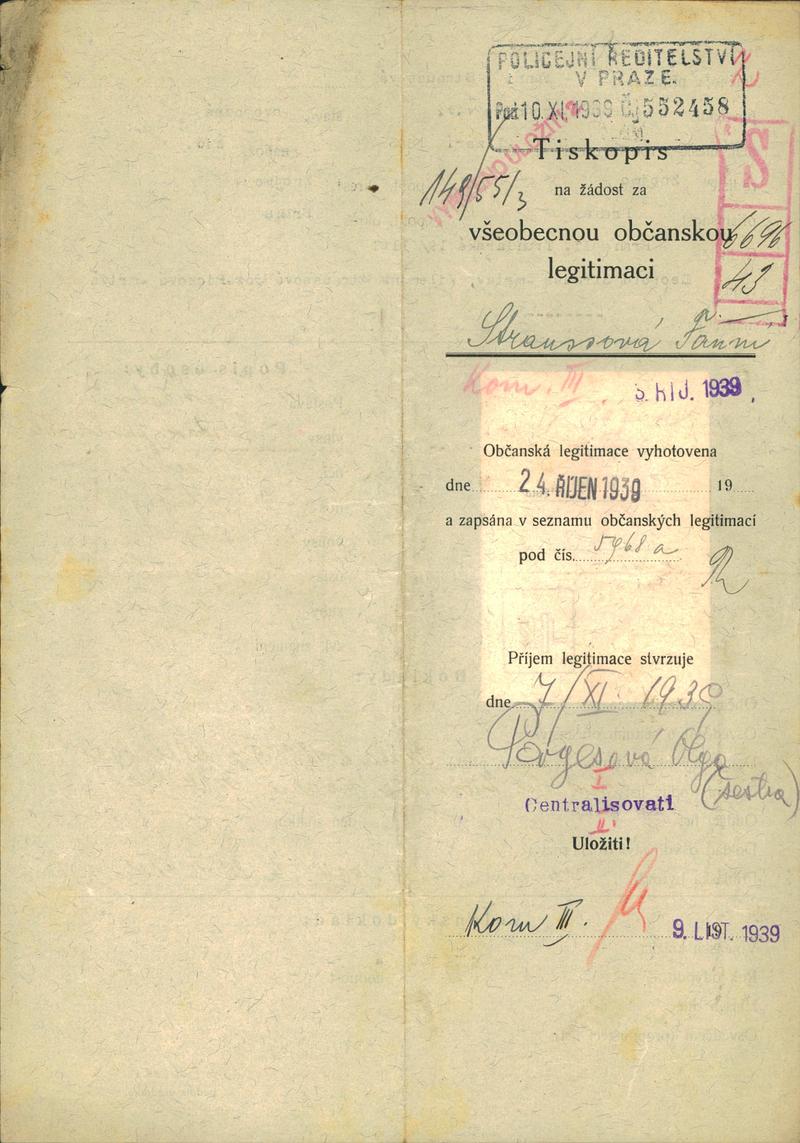 POLICEJNÍ ŘEDITELSTVÍ
V PRAZE.
10.XI.1939 Čj 552458
Tiskopis
149/55/3
na žádost za
všeobecnou občanskou
6696
legitimaci
43
Straussová Fanni
Kom. III
5. ŘÍJ. 1939
Občanská legitimace vyhotovena
dne 24. ŘÍJEN 1939 19
a zapsána v seznamu občanských legitimací
pod čís. 5968 a
Příjem legitimace stvrzuje
dne 7/XI. 1939
Pörgesová Olga
I
(sestra)
Centralisovati
II.
Uložiti!
Kom III.
9. LIST. 1939